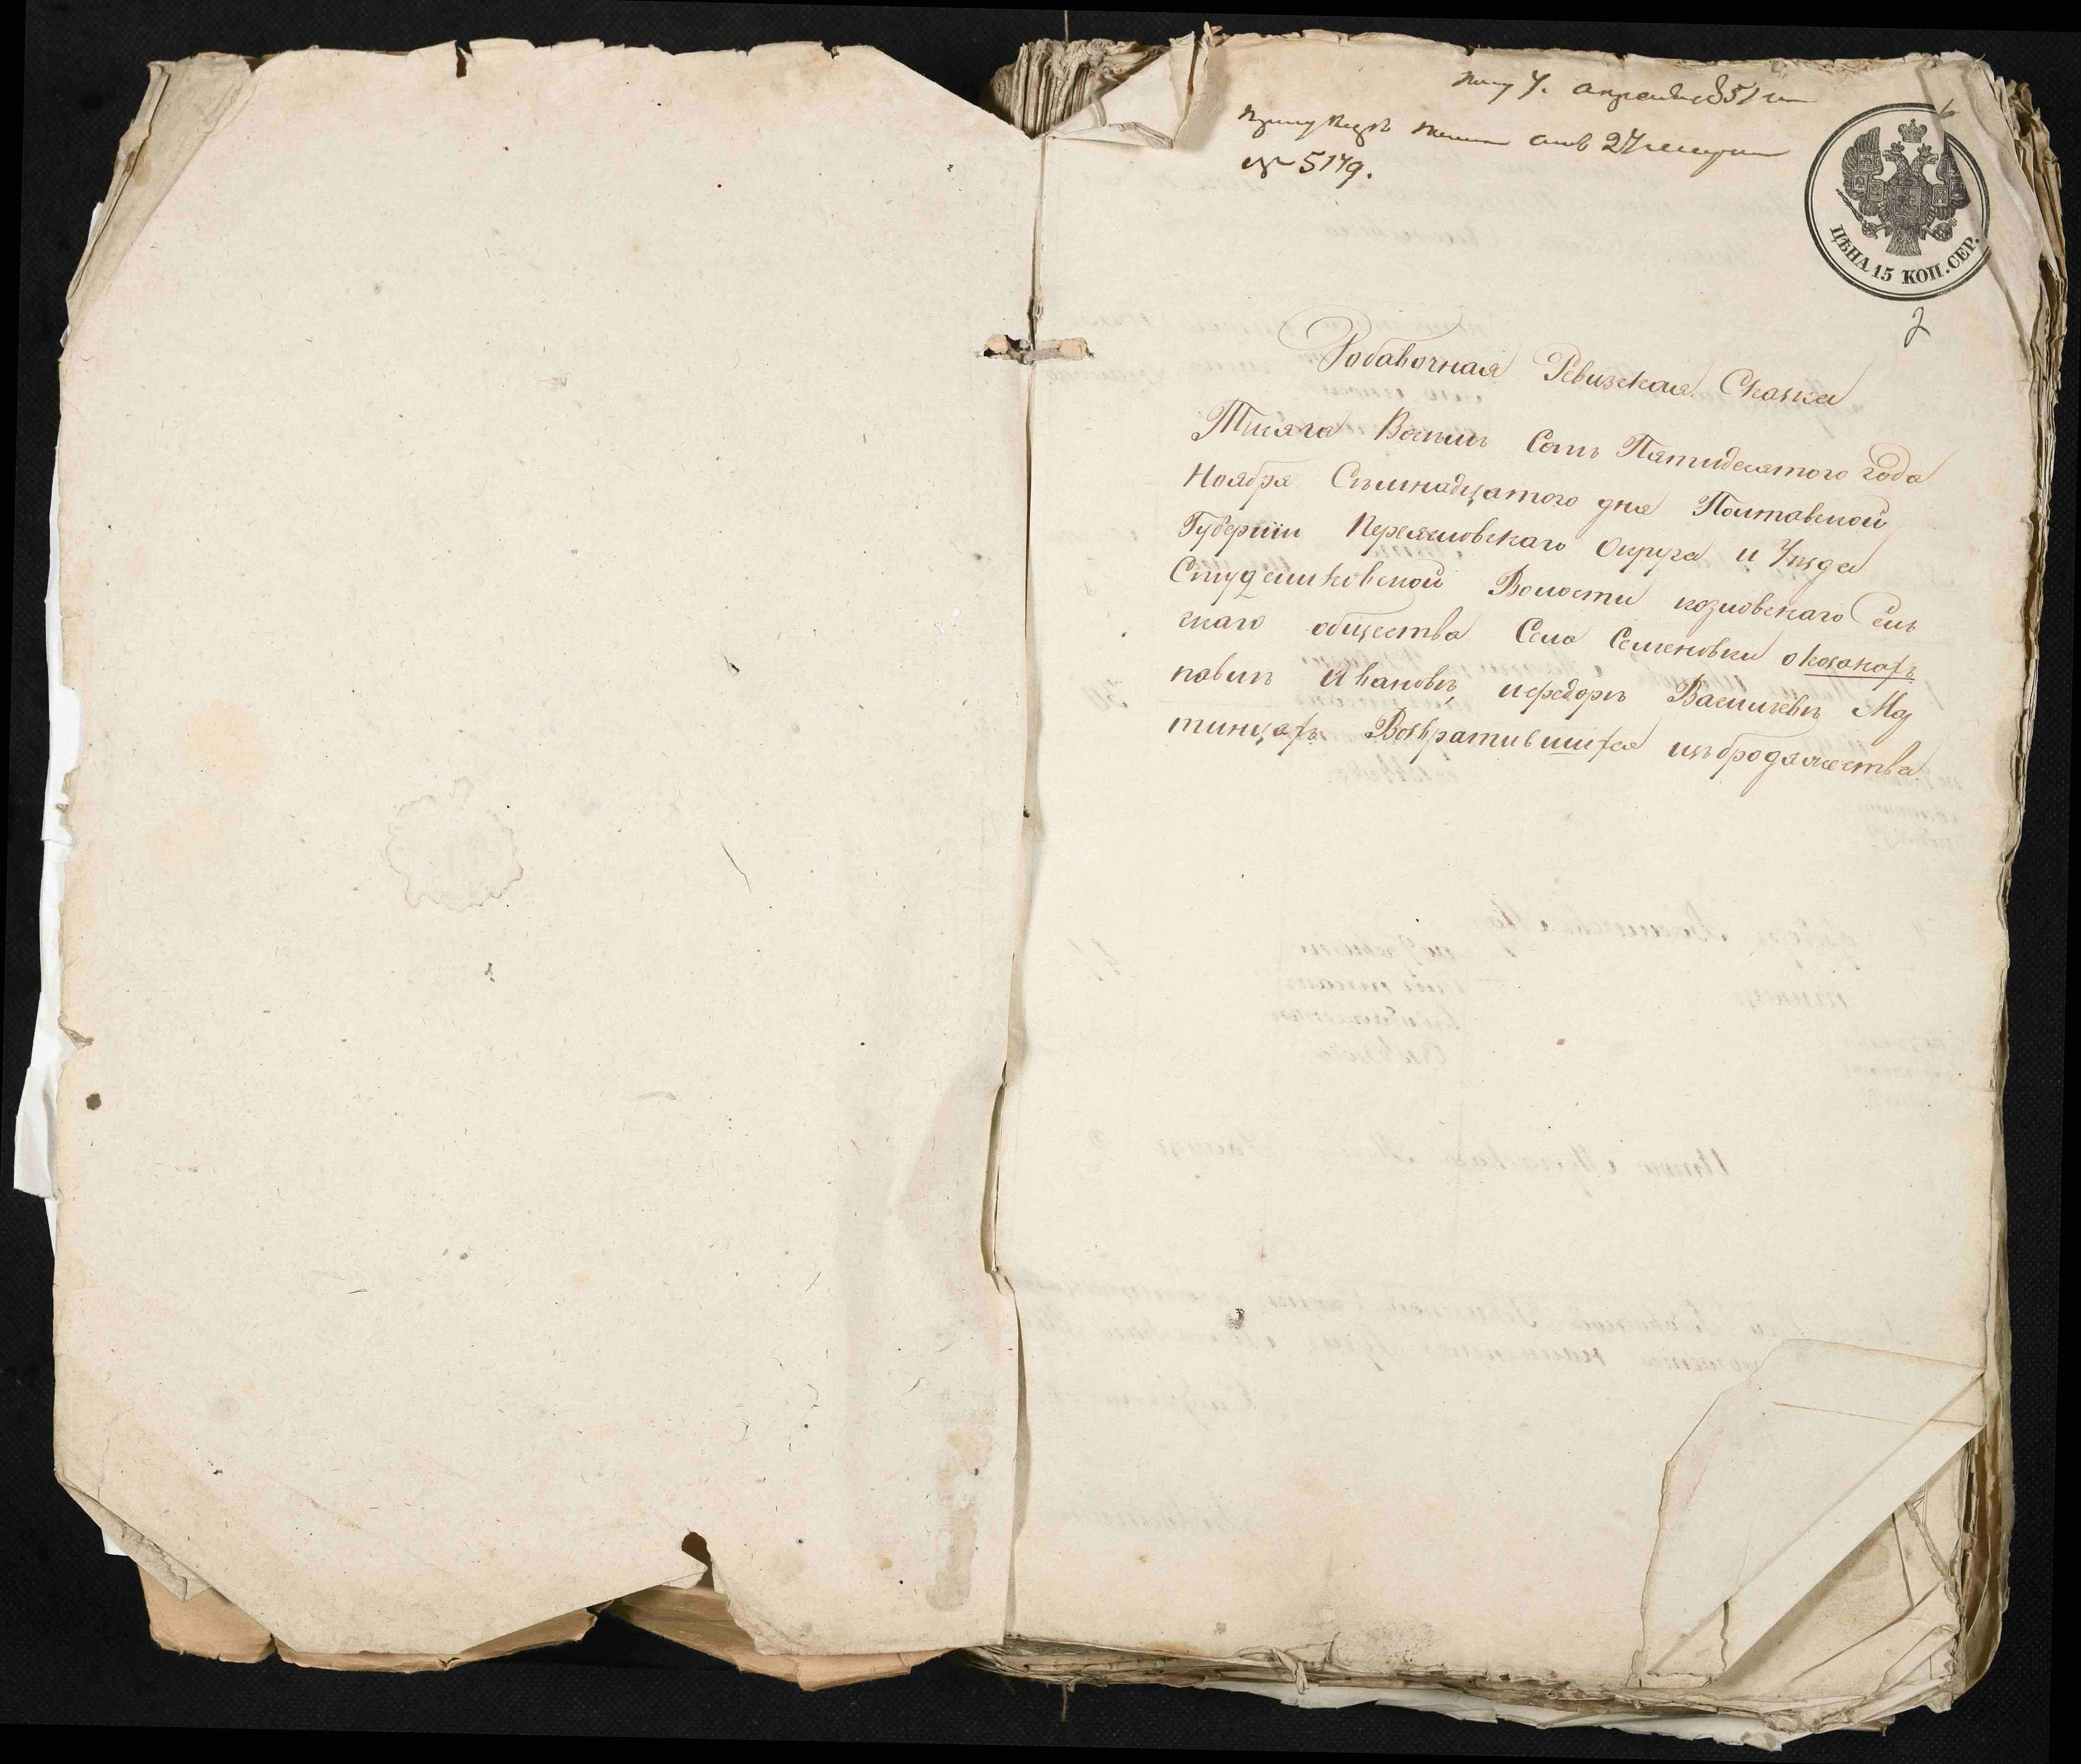 № 5179.
ЦѢНА 15 КОП. СЕР.
2
Добавочная Ревизская Сказка
Тисяча Восемь Сотъ Пятидесятого года
Ноября Съмнадцатого дня Полтавской
Губернии Переясловскаго Округа и Уезда
Студениковской Волости козловскаго Сель
скаго общества Села Семеновки о козакахъ
павилъ Ивановъ и федоръ Васильевъ
Возвратившихся изъ бродяжества